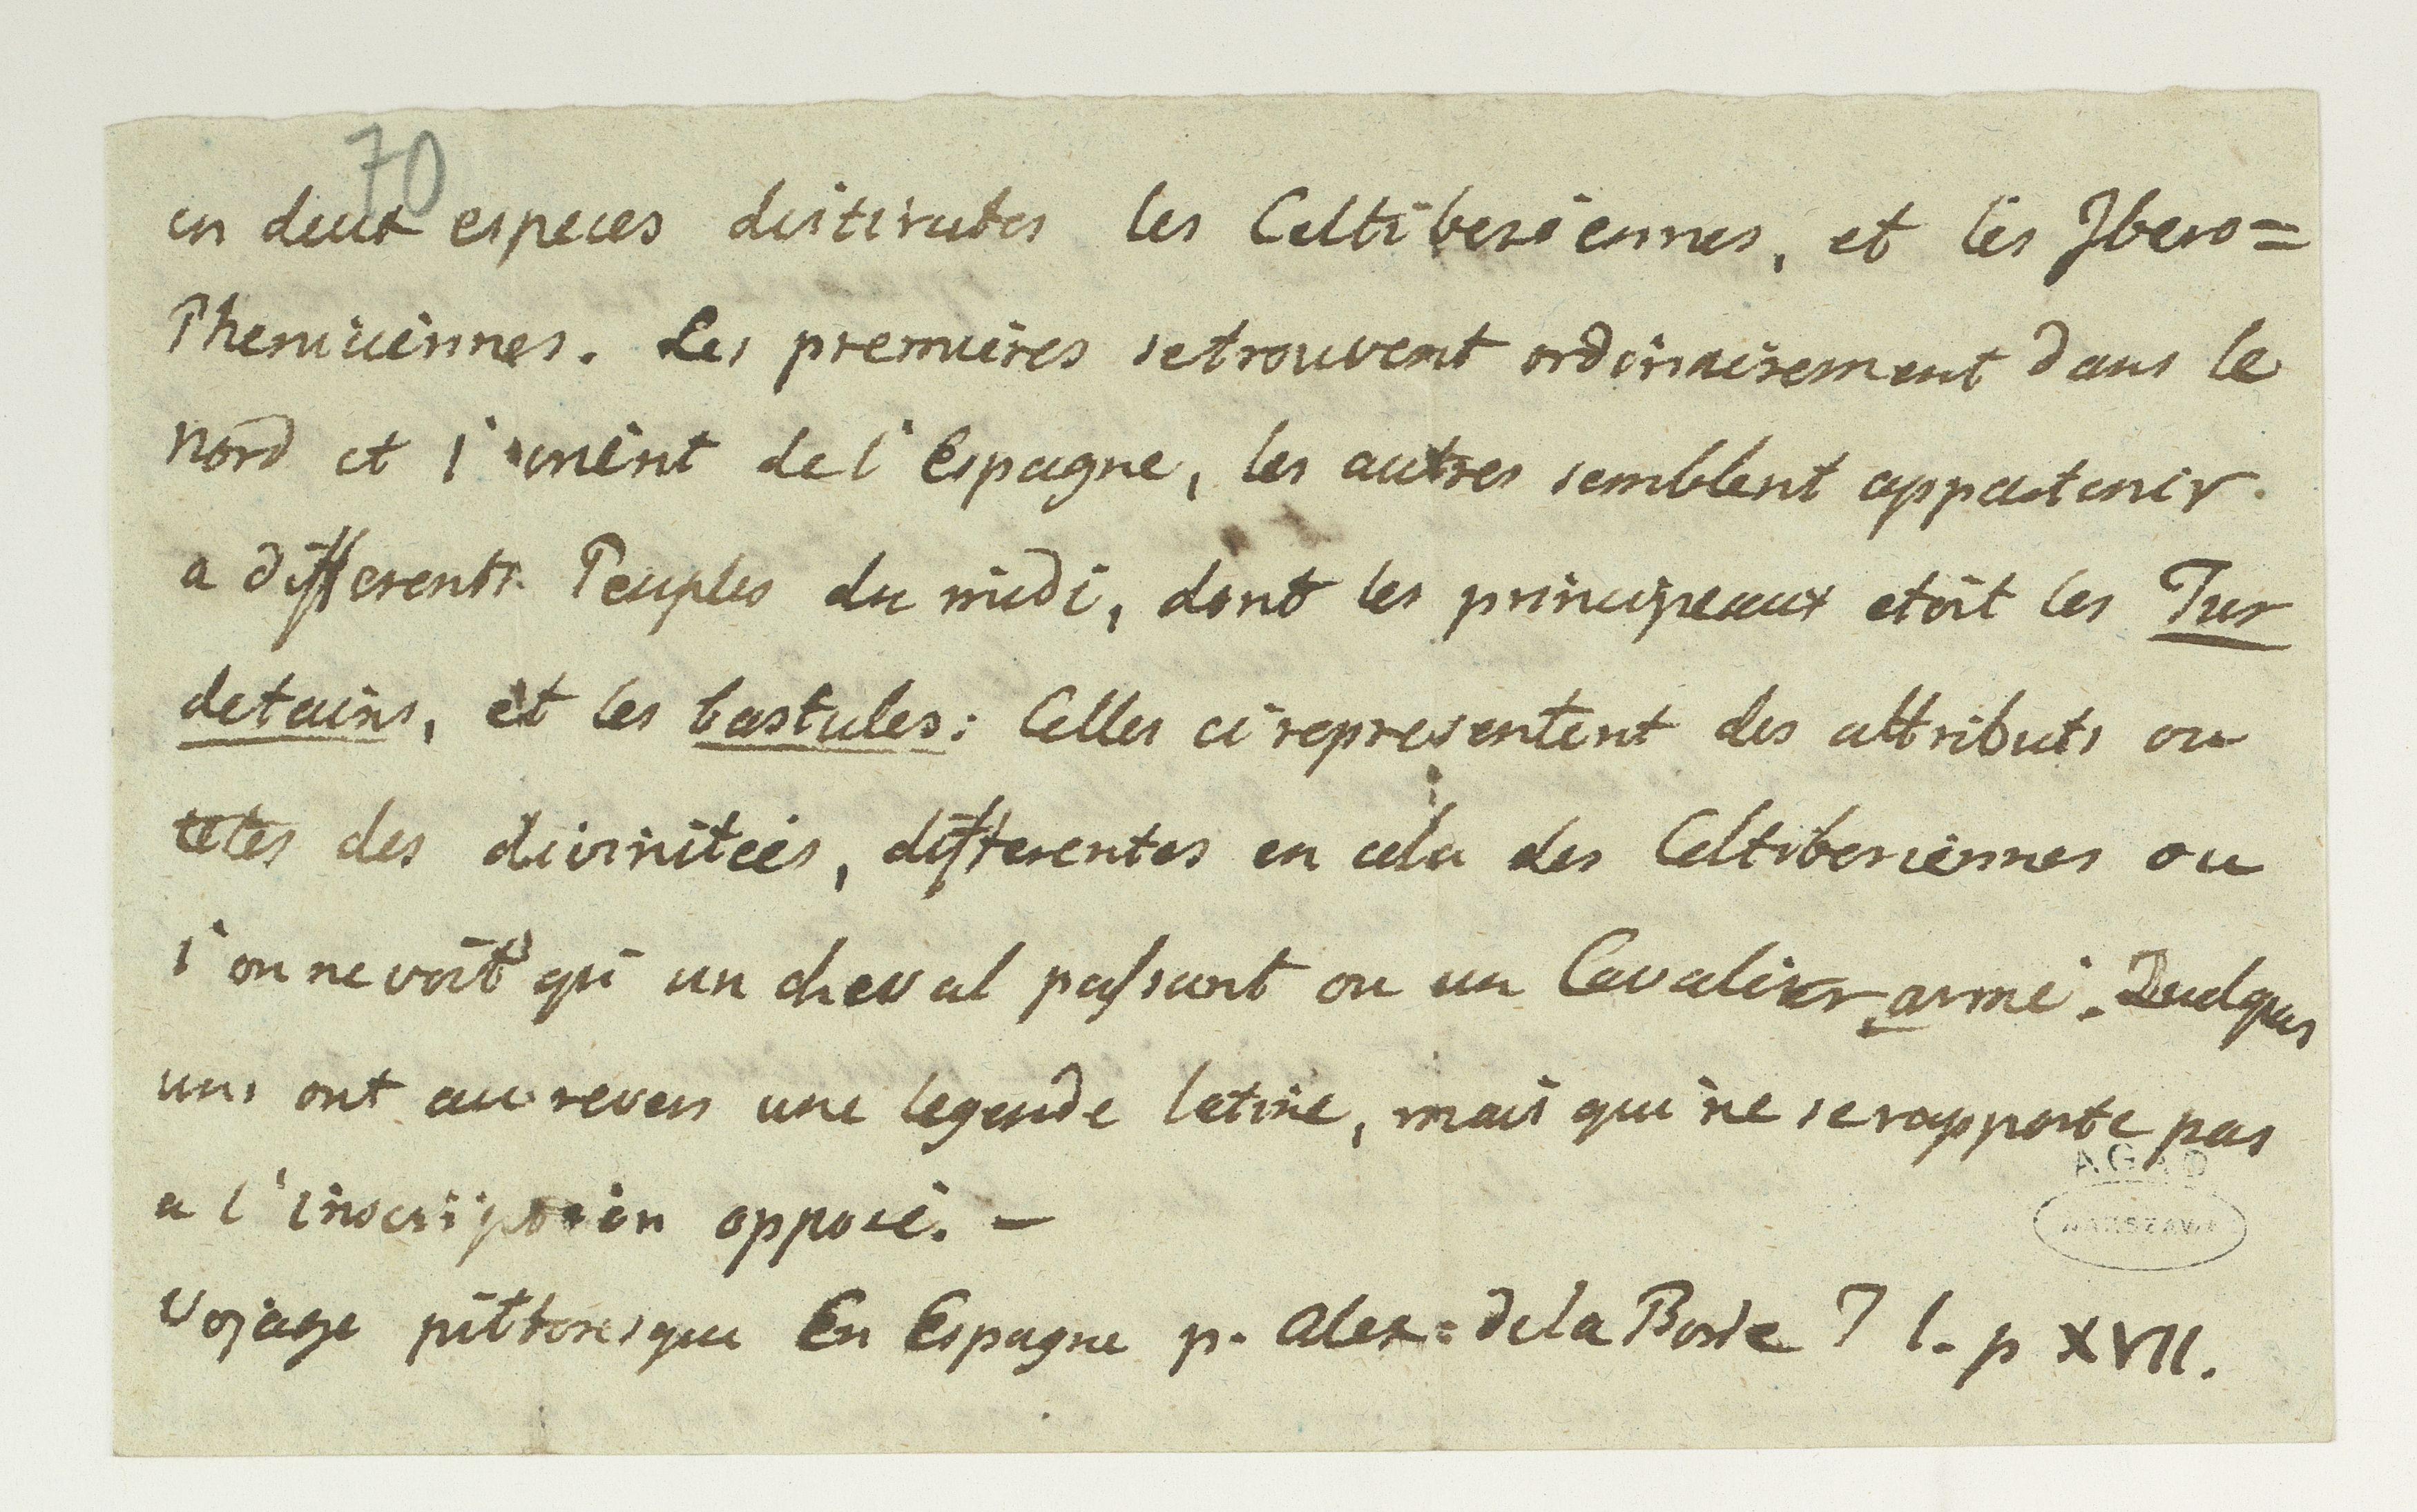 70
en deux especes distinctes les Celtiberiennes, et les Ibero=
Pheniciennes. Les premieres se trouvent ordinairement dans le
nord et l'orient de l'Espagne, les autres semblent appartenir
a differents Peuples du midi, dont les principeaux etoit les Tur
detains, et les bastules: Celles ci representent des attributs ou
tetes des divinitees, differentes en cela des Celtiberiennes ou
l'on ne voit qu'un cheval passant ou un Cavalier armé. Quelques
uns ont au revers une legende latine, mais qui ne se rapporte pas
a l'inscription opposé. —
Vojage pittoresque En Espagne p. Alex: de la Borde T 1. p XVII.
AGAD
WARSZAWA